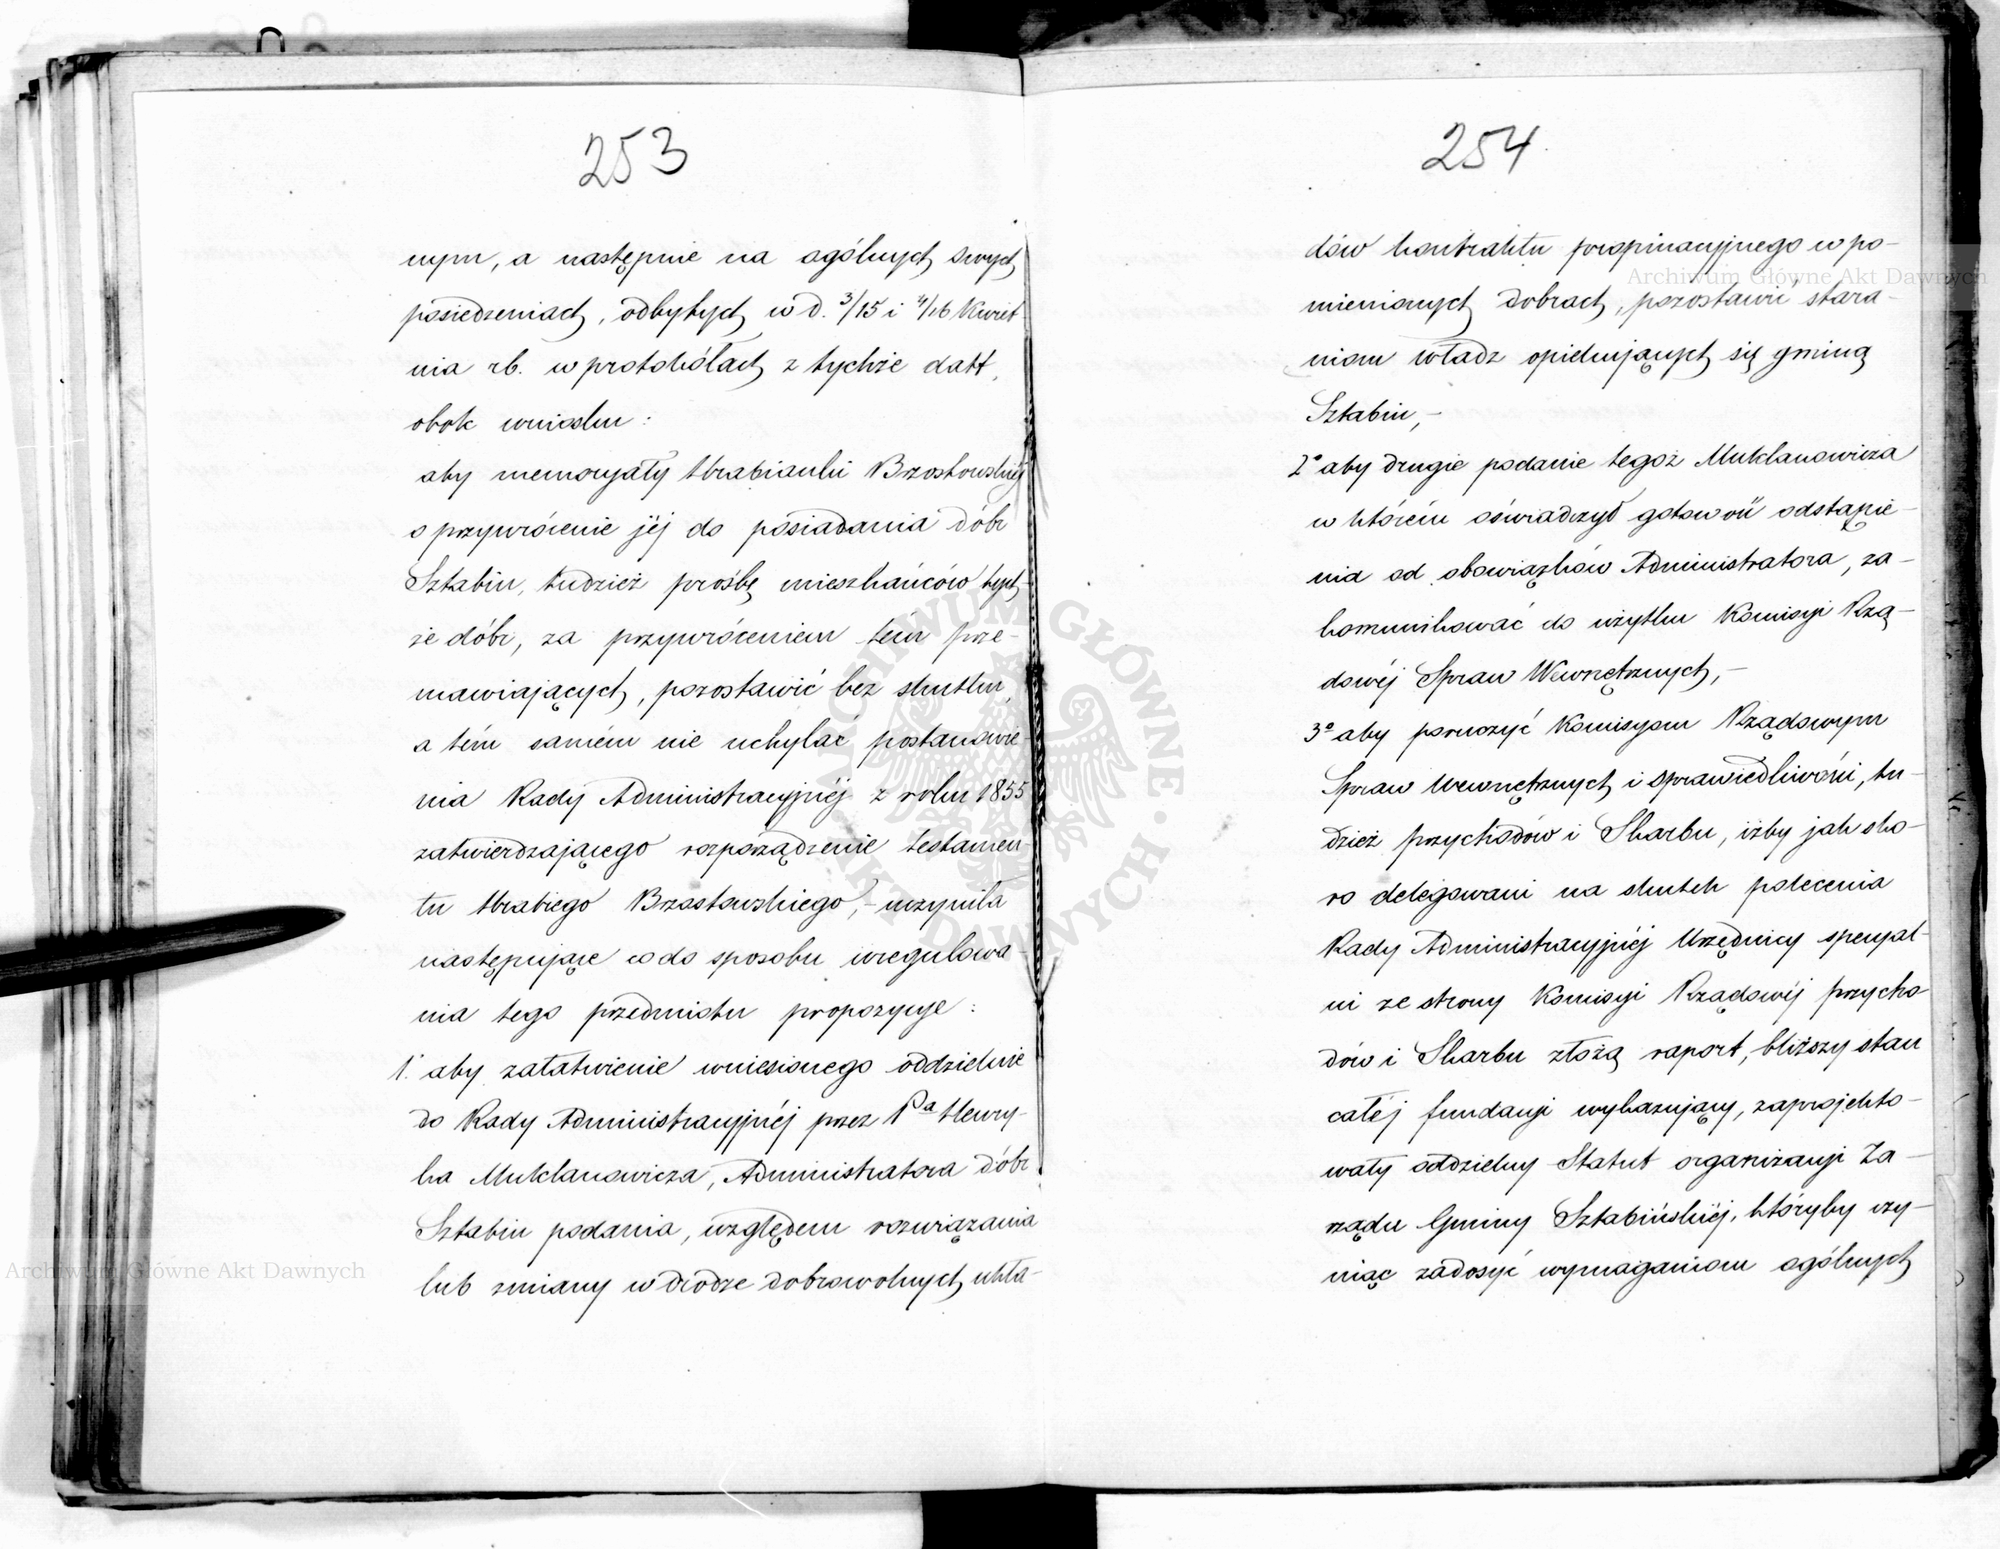 253
nym, a następnie na ogólnych swych
posiedzeniach, odbytych w d. 3/15 i 4/16 Kwiet
nia rb. w protokółach z tychże datt,
obok wniosku:
aby memoryały Hrabianki Brzostowskiéj
o przywrócenie jéj do posiadania dóbr
Sztabin, tudzież prośbę mieszkańców tych
że dóbr, za przywróceniem tém prze-
mawiających, pozostawić bez skutku,
a tém samém nie uchylać postanowie-
nia Rady Administracyjnéj z roku 1855
zatwierdzającego rozporządzenie testamen-
tu Hrabiego Brzostowskiego, - uczyniła
następujące co do sposobu uregulowa-
nia tego przedmiotu propozycye:
1. aby załatwienie wniesionego oddzielnie
do Rady Administracyjnéj przez Pa Henry-
ka Muklanowicza, Administratora dóbr
Sztabin podania, względem rozwiązania
lub zmiany w drodze dobrowolnych ukła-
254
dów kontraktu propinacyjnego w po-
mienionych dobrach, pozostawić stara-
niom władz opiekujących się gminą
Sztabin, -
2° aby drugie podanie tegoż Muklanowicza
w którém oświadczył gotowość odstąpie-
nia od obowiązków Administratora, za-
komunikować do użytku Komisyi Rzą-
dowéj Spraw Wewnętrznych, -
3° aby poruczyć Komisyom Rządowym
Spraw Wewnętrznych i Sprawiedliwości, tu-
dzież Przychodów i Skarbu, iżby jak sko-
ro delegowani na skutek polecenia
Rady Administracyjnéj Urzędnicy specyal-
ni ze strony Komisyi Rządowéj Przycho-
dów i Skarbu złożą raport, bliższy stan
całéj fundacyi wykazujący, zaprojekto-
wały oddzielny Statut organizacyi Za-
rządu Gminy Sztabińskiéj, któryby czy-
niąc zadosyć wymaganiom ogólnych
Archiwum Główne Akt Dawnych
Archiwum Główne Akt Dawnych
ARCHIWUM GŁÓWNE AKT DAWNYCH